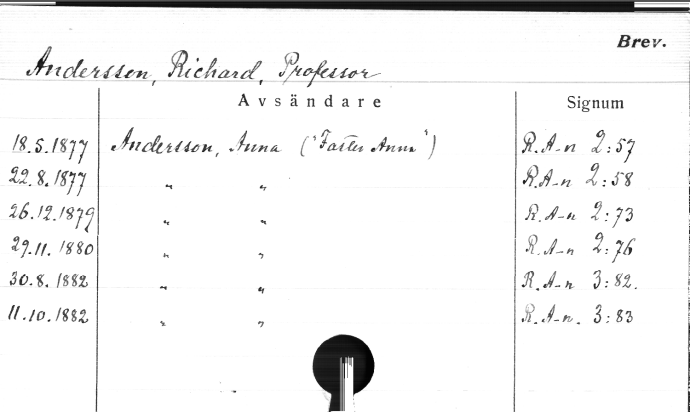 Brev.
Andersson, Richard, Professor
Avsändare Signum
18.5.1877 Andersson, Anna ("Faster Anna") R. A-n 2:57
22.8.1877 " " R. A-n 2:58
26.12.1879 " " R. A-n 2:73
29.11.1880 " " R. A-n 2:76
30.8.1882 " " R. A-n 3:82.
11.10.1882 " " R. A-n. 3:83